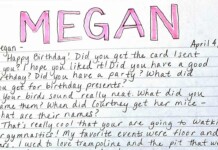 MEGAN
April 4,
egan -
Happy Birthday! Did you get the card I sent
you? I hope you liked it! Did you have a good
rthday? Did you have a party? What did
ou get for birthday presents?
Your birds sound really neat. What did you
ame them? When did Courtney get her mice -
at are their names?
That's really cool that your are going to watch
gymnast! My favorite events were floor and
rs. I used to love trampoline and the pit that we